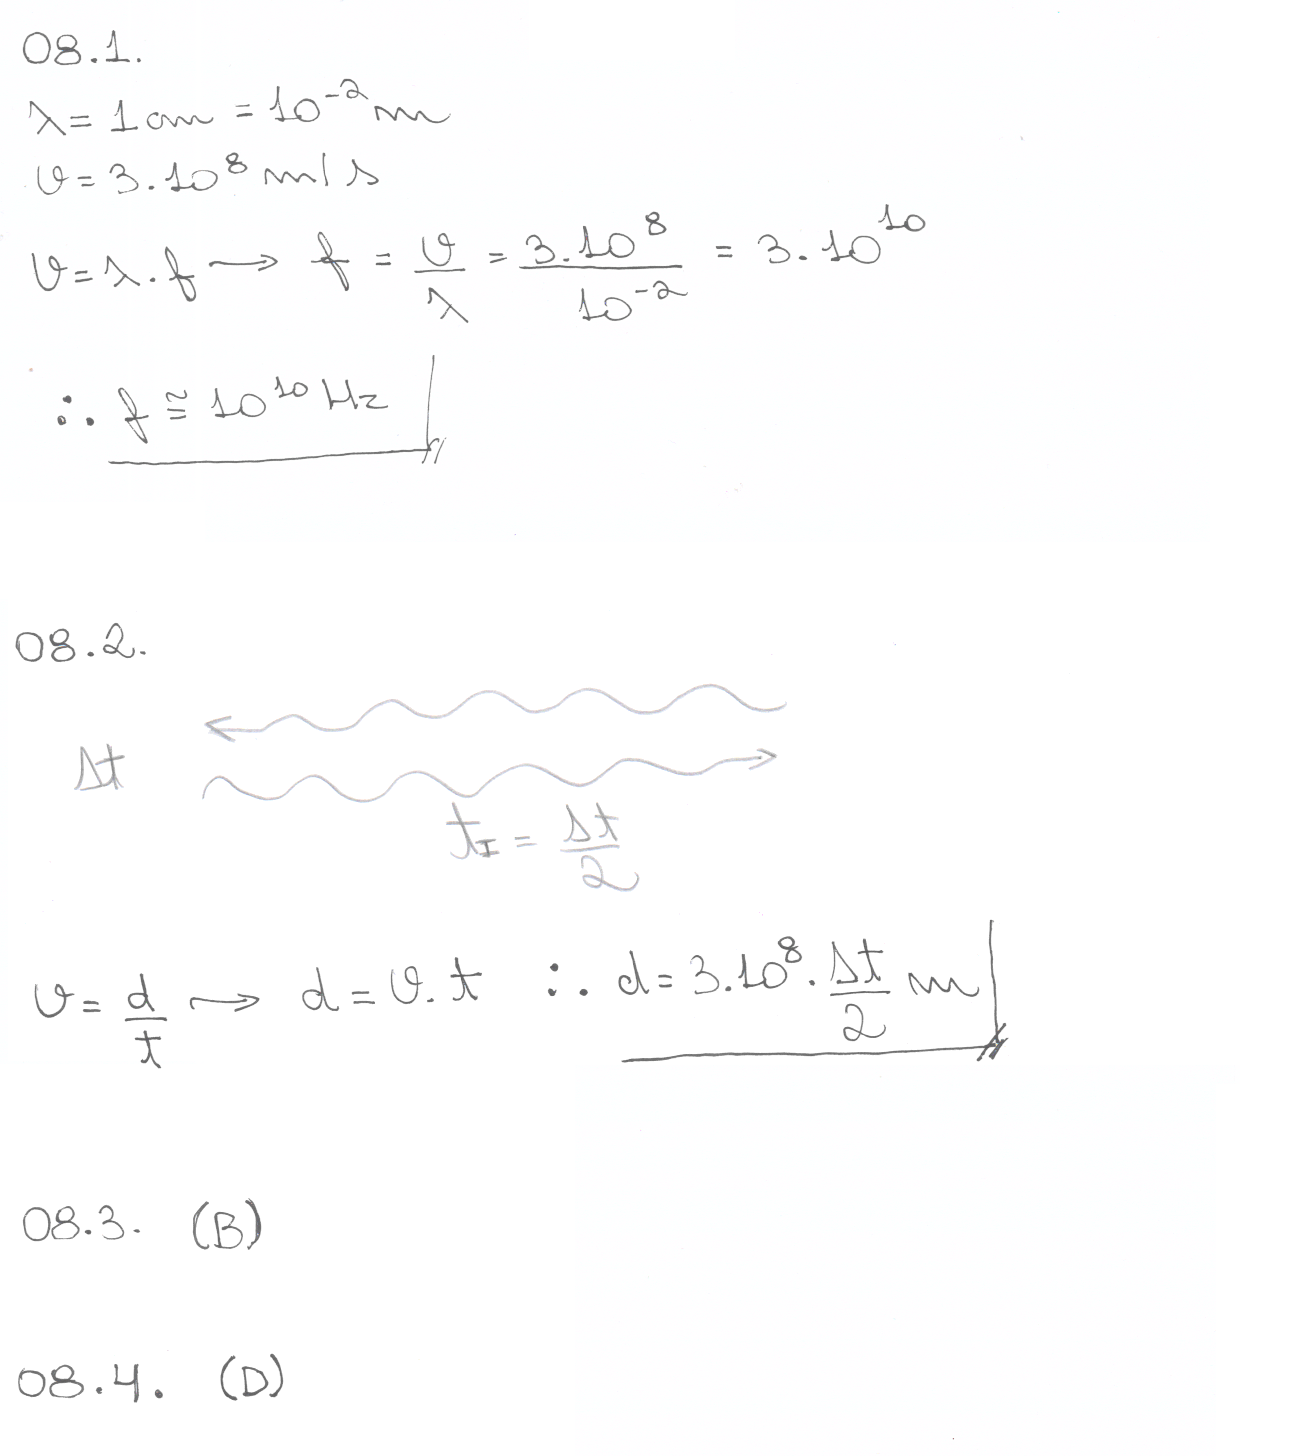 08.1.
λ = 1 cm = 10⁻² m
v = 3.10⁸ m/s
v = λ.f → f = v/λ = 3.10⁸/10⁻² = 3.10¹⁰
∴ f ≅ 10¹⁰ Hz
08.2.
Δt
t_I = Δt/2
v = d/t → d = v.t ∴ d = 3.10⁸.Δt/2 m
08.3. (B)
08.4. (D)